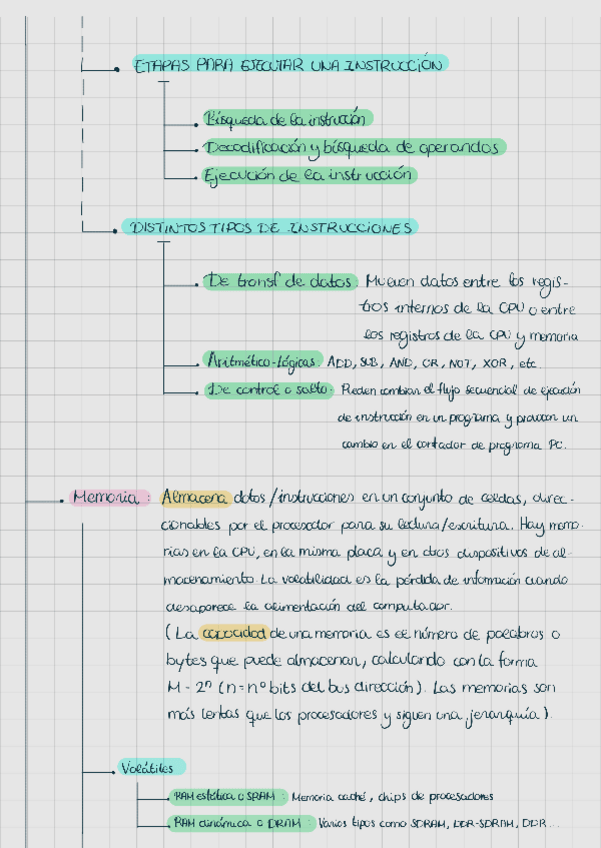 ETAPAS PARA EJECUTAR UNA INSTRUCCIÓN
Búsqueda de la instrución
Decodificación y búsqueda de operandos
Ejecución de la instrucción
DISTINTOS TIPOS DE INSTRUCCIONES
De transf de datos: Mueven datos entre los regis-
tros internos de la CPU o entre
los registros de la CPU y memoria
Aritmético-Lógicas: ADD, SUB, AND, OR, NOT, XOR, etc
De control o salto: Pueden cambiar el flujo secuencial de ejecución
de instrucción en un programa y provocan un
cambio en el contador de programa PC.
Memoria: Almacena datos/instrucciones en un conjunto de celdas, direc-
cionables por el procesador para su lectura/escritura. Hay memo-
rias en la CPU, en la misma placa y en otros dispositivos de al-
macenamiento. La volatilidad es la pérdida de información cuando
desaparece la alimentación del computador.
(La capacidad de una memoria es el número de palabras o
bytes que puede almacenar, calculando con la forma
M = 2ⁿ (n = nº bits del bus dirección). Las memorias son
más lentas que los procesadores y siguen una jerarquía).
Volátiles
RAM estática o SRAM: Memoria caché, chips de procesadores
RAM dinámica o DRAM: Varios tipos como SDRAM, DDR-SDRAM, DDR...